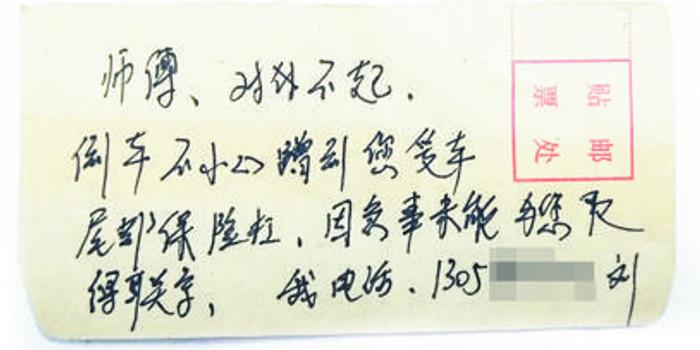 师傅、对不起.
倒车不小心蹭到您爱车
尾部保险杠,因急事未能与您取
得联系, 我电话.1305 刘
贴邮
票处